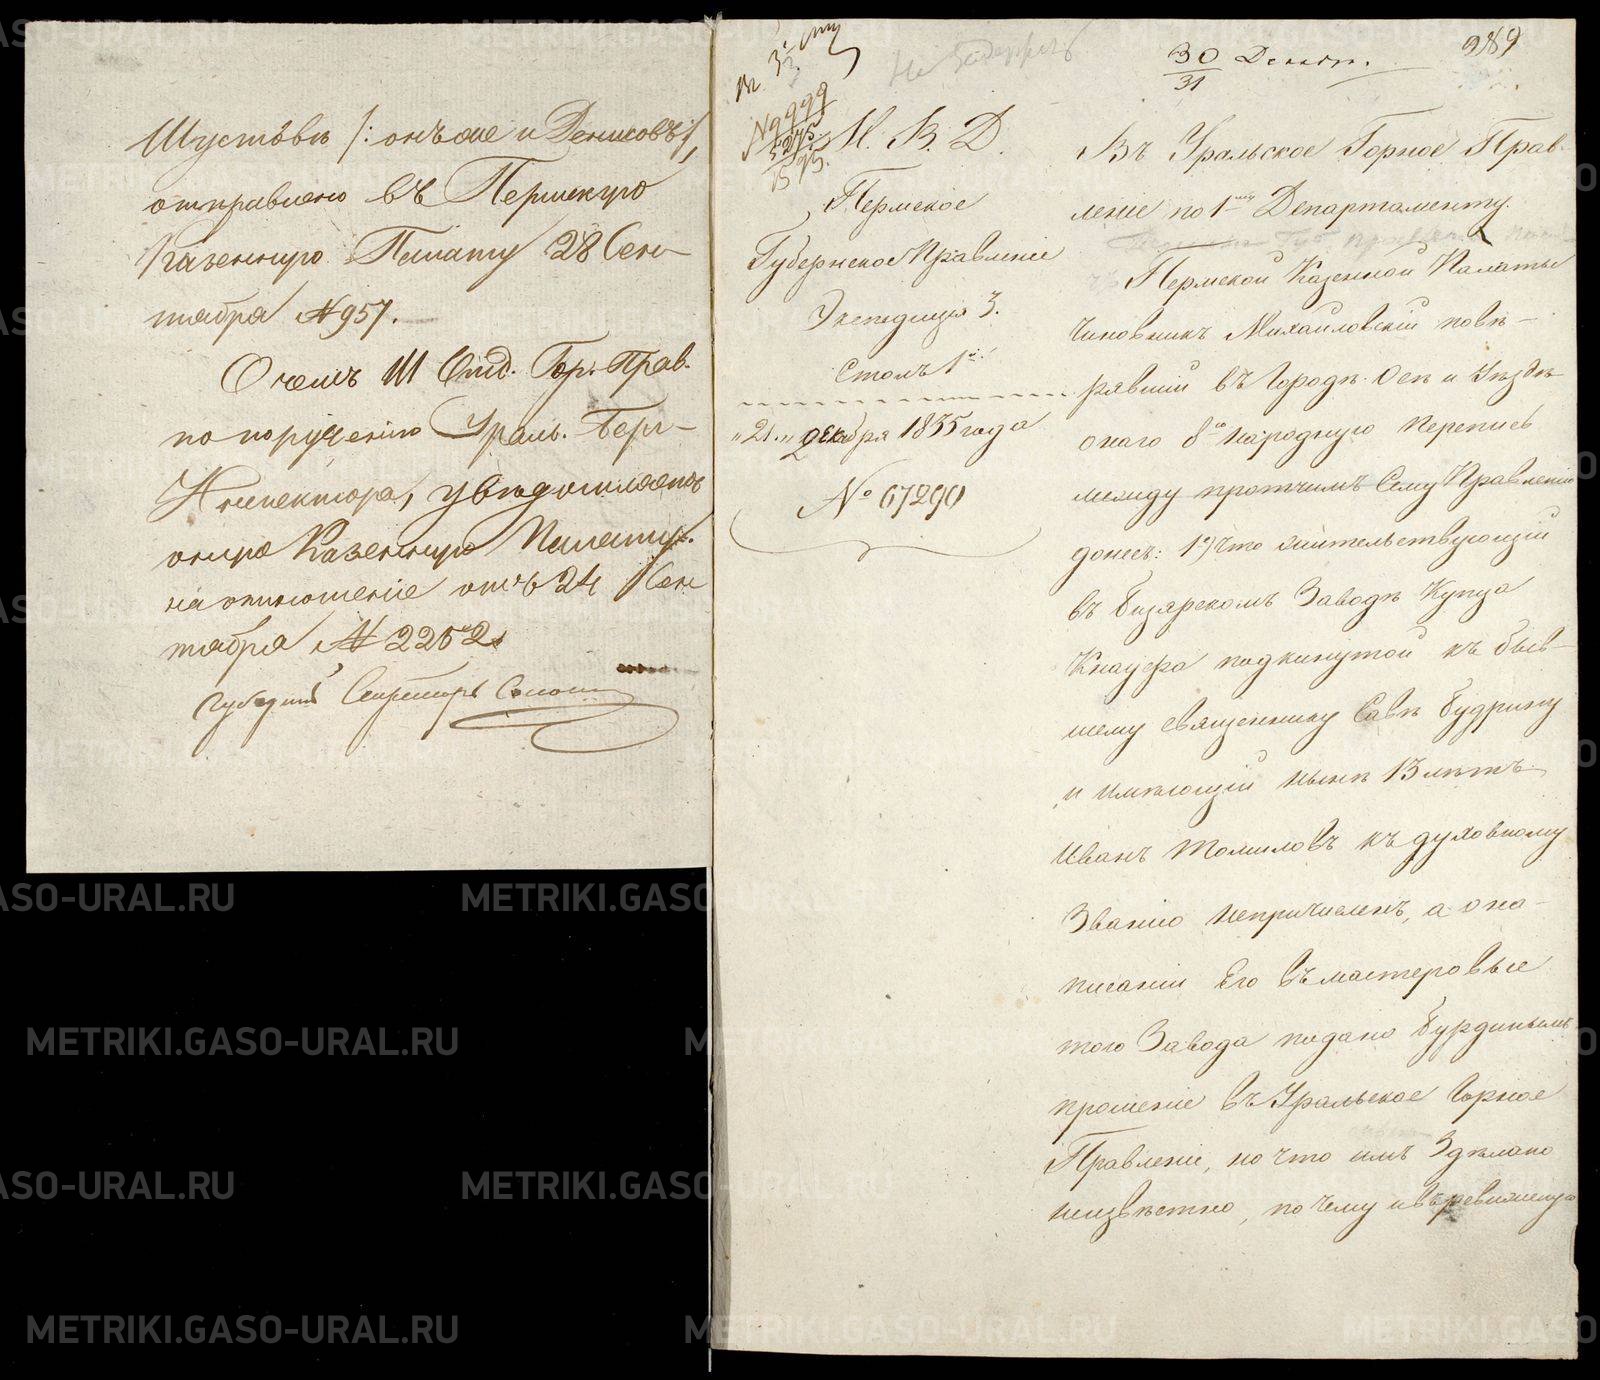 Шустовѣ /: онъ же и Денисовъ :/
отправлено въ Пермскую
Казенную Палату 28 Сен-
тября №957.
О чемъ III Отд. Гор. Прав.
по порученію Ураль. Берг-
Инспектора, увѣдомляетъ
оную Казенную Палату
на отношеніе отъ 24 Сен
тября № 2252.
Губернскій Секретарь
30 Декабр.
31
989
№9999
М. В. Д.
Пермское
Губернское Правленіе
Экспедиція 3.
Столъ 1й
"21" декабря 1835 года
№ 67290
Въ Уральское Горное Прав-
леніе по 1му Департаменту.
Пермской Казенной Палаты
Чиновникъ Михайловскій повѣ-
рявшій въ Городѣ Осѣ и Уѣздѣ
онаго 8ю народную перепись
между протчимъ Сему Правленію
донесъ: 1) Что жительствующій
въ Бизярскомъ Заводѣ Купца
Кнауфа подкинутой къ быв-
шему священнику Савѣ Будрину
и имѣющій нынѣ 13 лѣтъ
Иванъ Томиловъ къ духовному
Званію непричисленъ, а о на-
писаніи Его въ мастеровые
того Завода подано Бурдинымъ
прошеніе въ Уральское Горное
Правленіе, но что имъ Здѣлано
неизвѣстно, по чему и въ ревизскую
METRIKI.GASO-URAL.RU